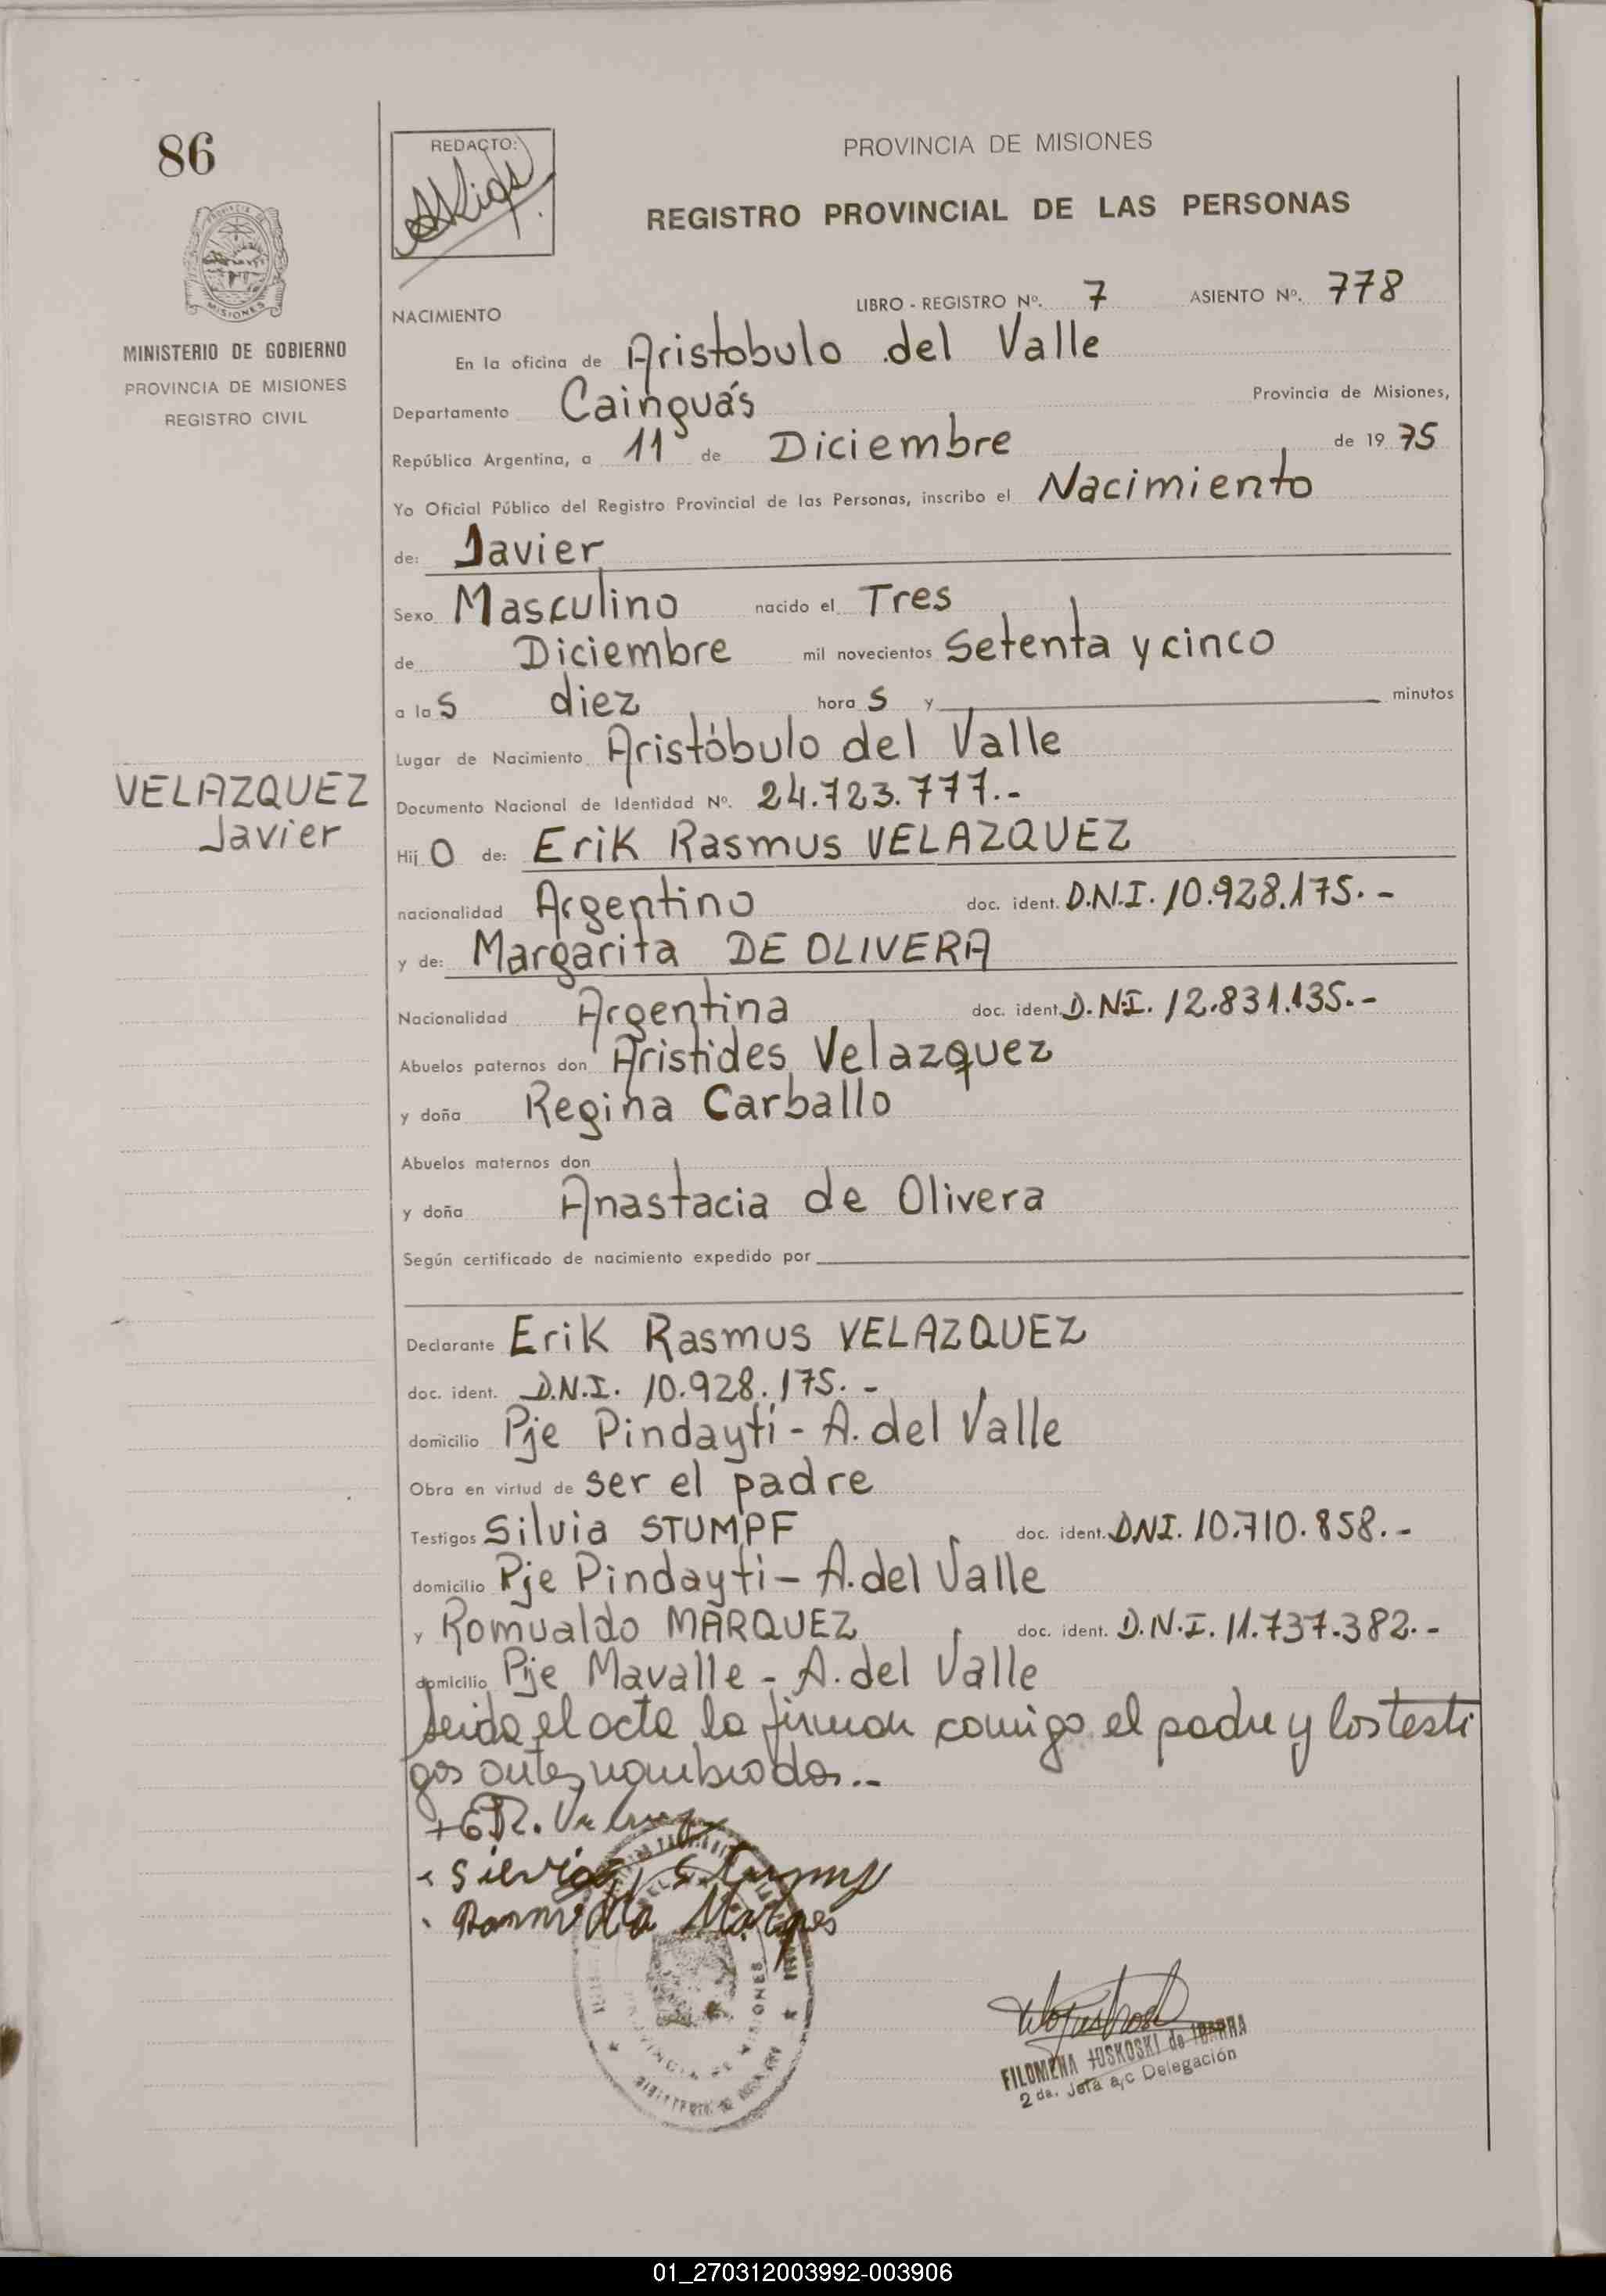 86
REDACTO:
PROVINCIA DE MISIONES
REGISTRO PROVINCIAL DE LAS PERSONAS
MISIONES
MINISTERIO DE GOBIERNO
PROVINCIA DE MISIONES
REGISTRO CIVIL
NACIMIENTO LIBRO - REGISTRO Nº. 7 ASIENTO Nº. 778
En la oficina de Aristobulo del Valle
Departamento Cainguás Provincia de Misiones,
República Argentina, a 11 de Diciembre de 19 75
Yo Oficial Público del Registro Provincial de las Personas, inscribo el Nacimiento
de: Javier
Sexo Masculino nacido el Tres
de Diciembre mil novecientos Setenta y cinco
a las diez horas y minutos
Lugar de Nacimiento Aristóbulo del Valle
VELAZQUEZ
Javier
Documento Nacional de Identidad Nº. 24.723.777.-
Hijo de: Erik Rasmus VELAZQUEZ
nacionalidad Argentino doc. ident. D.N.I. 10.928.175.-
y de: Margarita DE OLIVERA
Nacionalidad Argentina doc. ident. D.N.I. 12.831.135.-
Abuelos paternos don Aristides Velazquez
y doña Regina Carballo
Abuelos maternos don
y doña Anastacia de Olivera
Según certificado de nacimiento expedido por
Declarante Erik Rasmus VELAZQUEZ
doc. ident. D.N.I. 10.928.175.-
domicilio Pje Pindayti - A. del Valle
Obra en virtud de ser el padre
Testigos Silvia STUMPF doc. ident. DNI. 10.710.858.-
domicilio Pje Pindayti - A. del Valle
y Romualdo MARQUEZ doc. ident. D.N.I. 11.737.382.-
domicilio Pje Mavalle - A. del Valle
Leida el acta la firman comigo el padre y los testi
gos antes nombrados.-
Silvia
FILOMENA JUSKOSKI de IBARRA
2 da. Jefa a/c Delegación
01_270312003992-003906